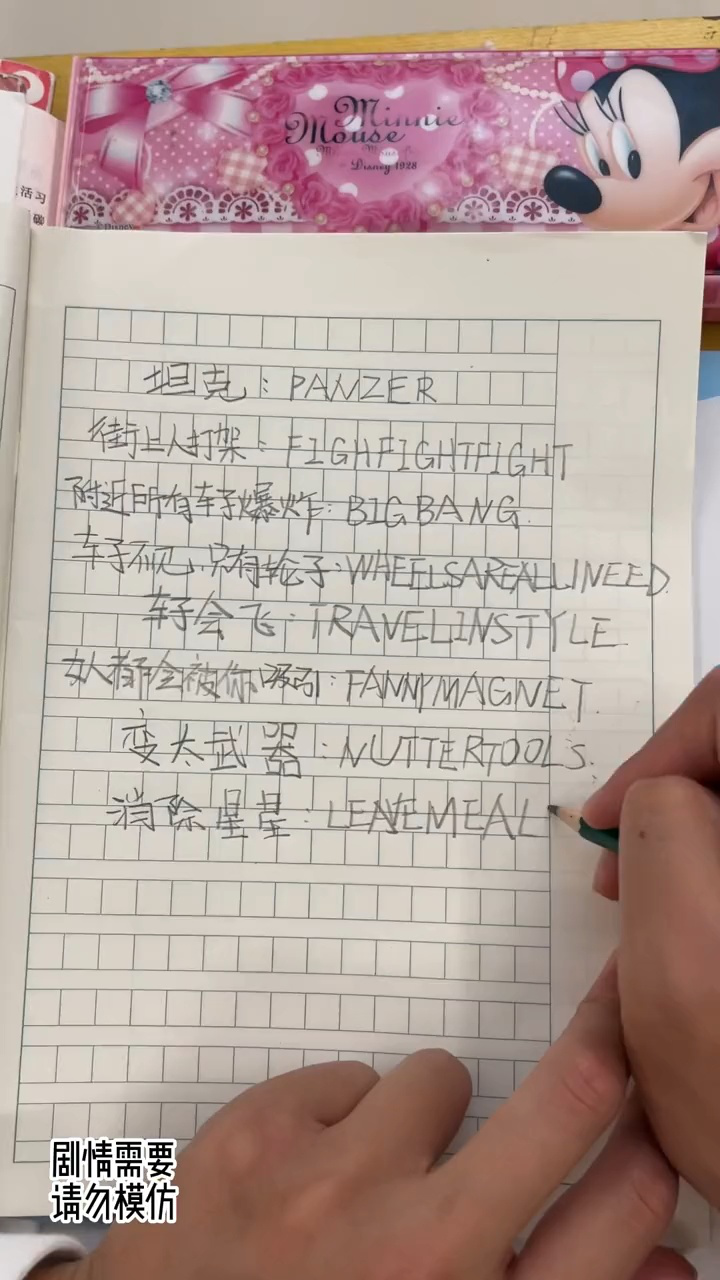 Minnie
Mouse
Disney 1928
©Disney
活习
坦克：PANZER
街上人打架：FIGHFIGHTFIGHT
附近所有车子爆炸：BIGBANG.
车子不见，只有轮子：WHEELSAREALLINEED.
车子会飞：TRAVELINSTYLE.
女人都会被你吸引：FANNYMAGNET.
变太武器：NUTTERTOOLS.
消除星星：LEAVEMEAL
剧情需要
请勿模仿